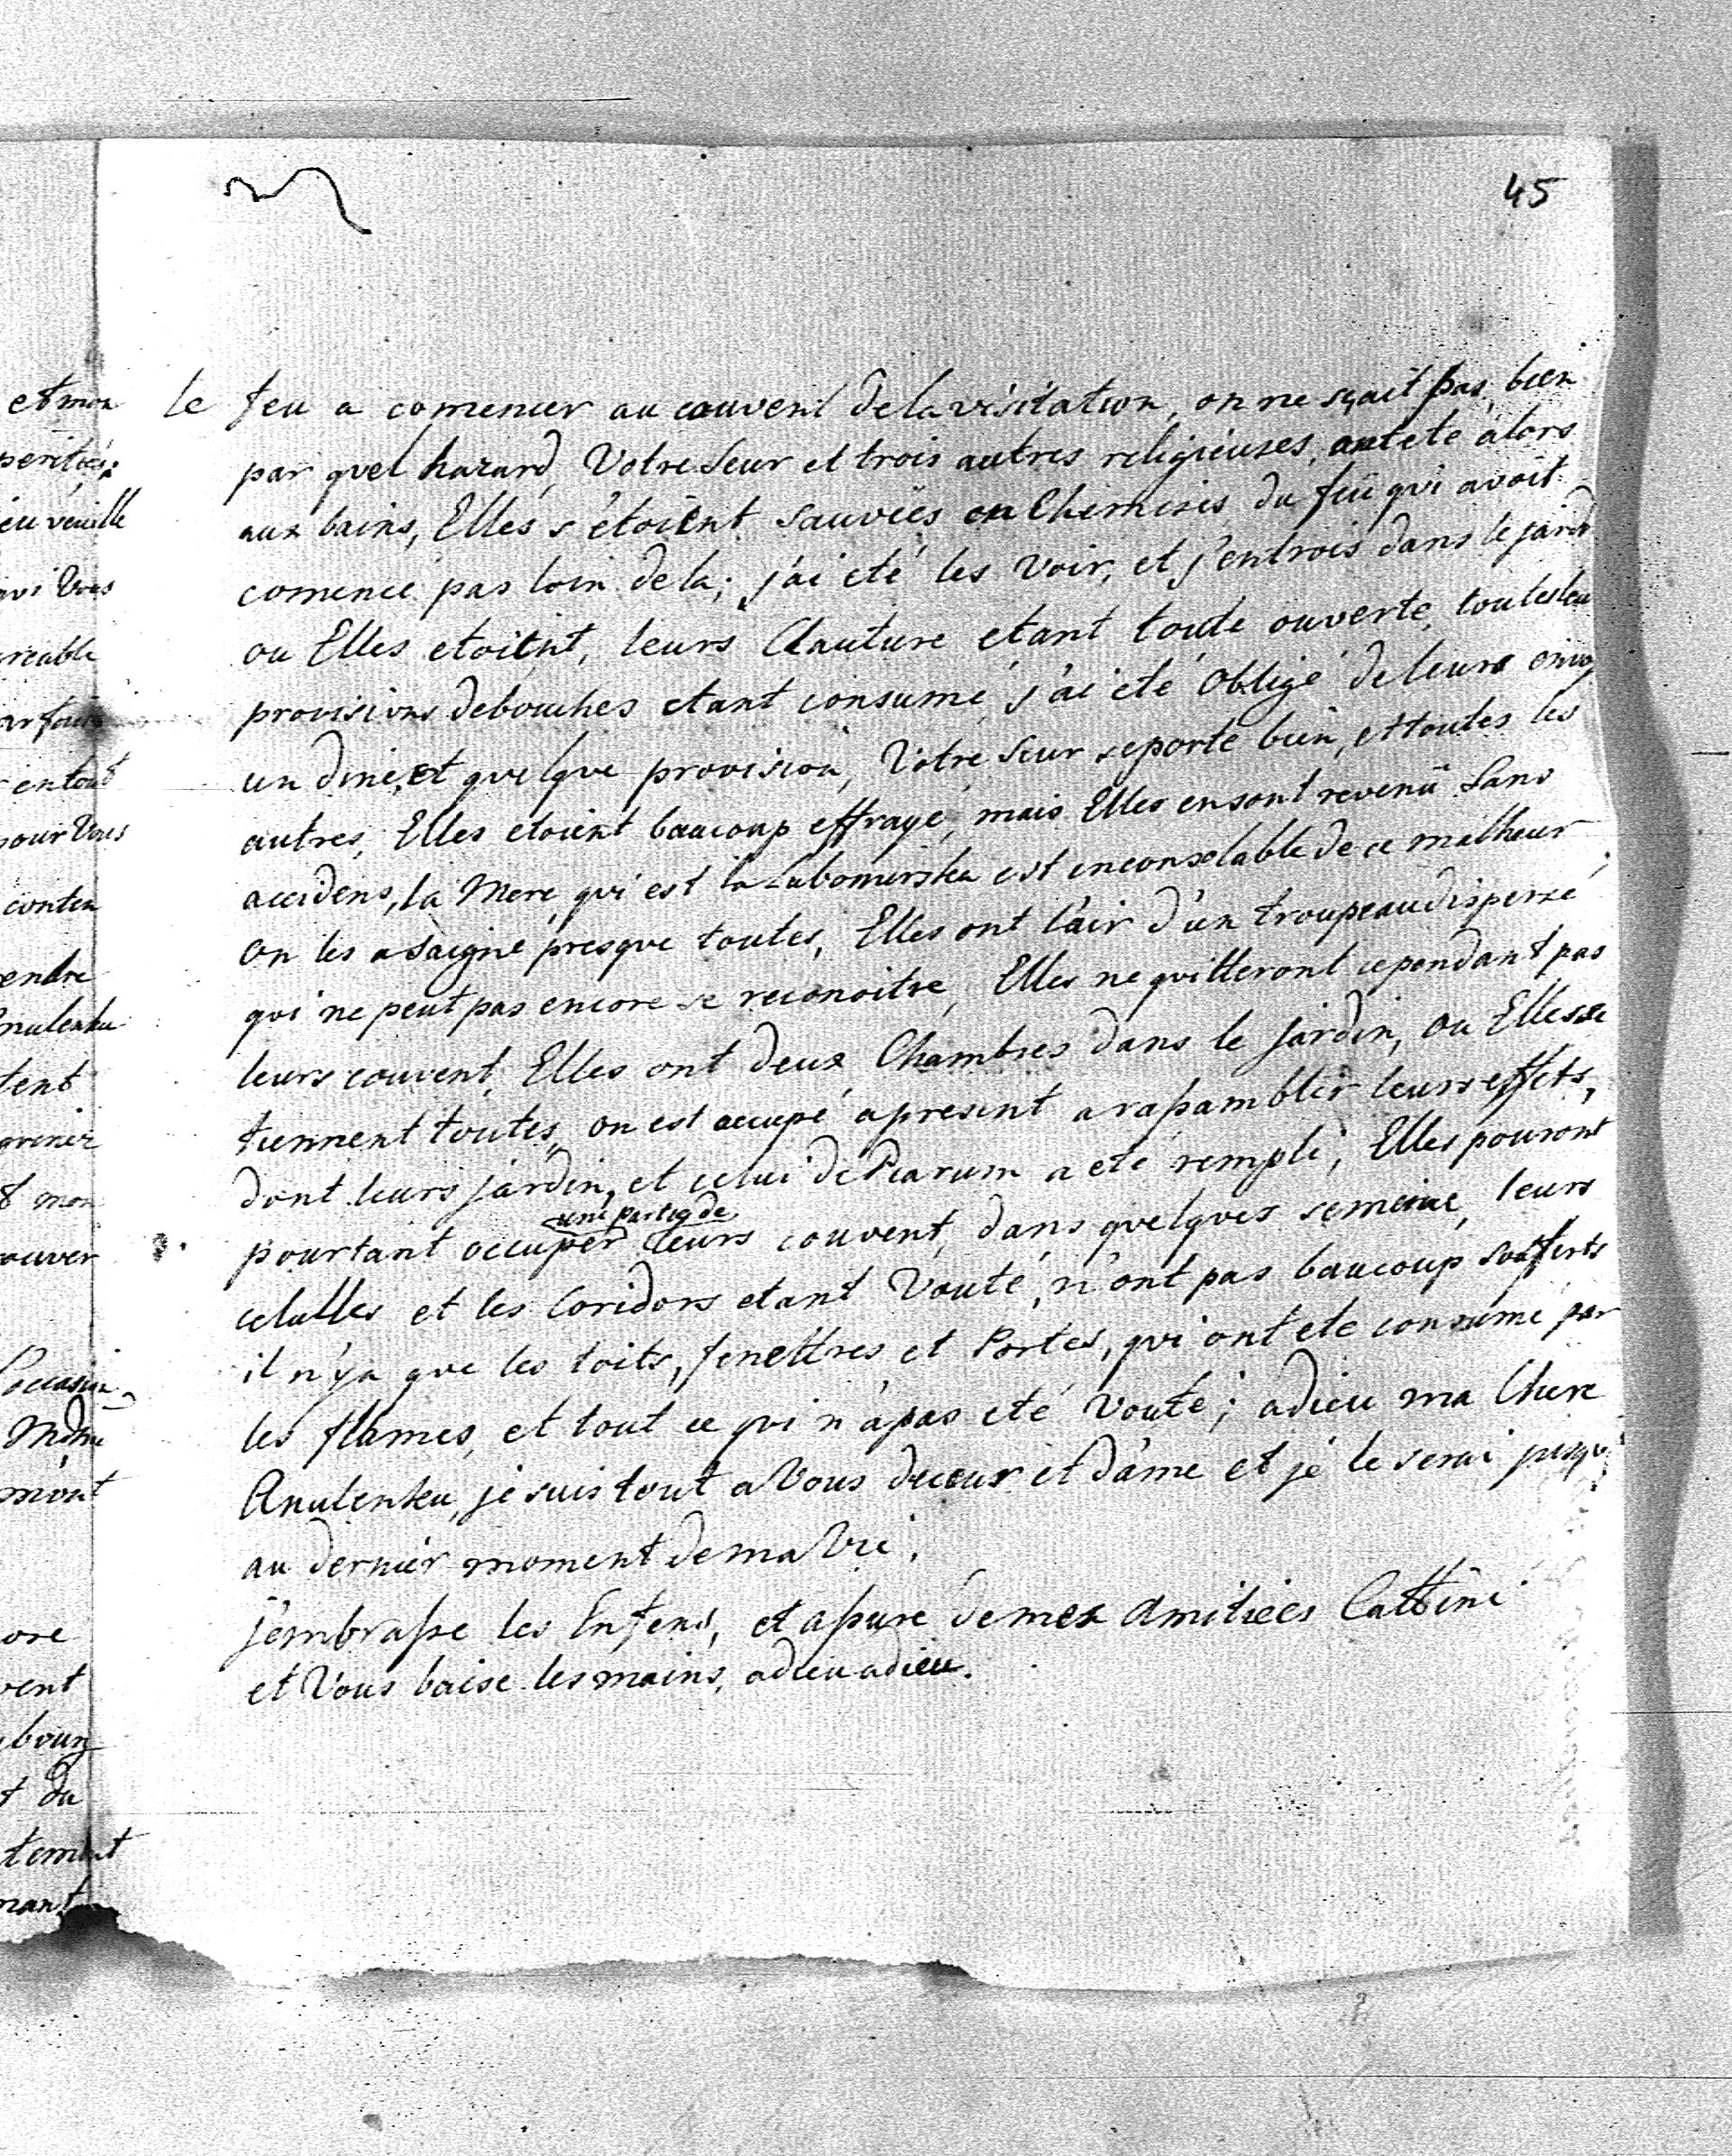 45
le feu a comencer au couvent de la visitation, on ne sçait pas bien
par quel hazard, Votre Seur et trois autres religieuses, ont eté alors
aux bains, Elles s'étoient sauvées en Chemises du feu qui avoit
comencé pas loin de la; j'ai eté les voir, et j'entrois dans le jard
ou Elles etoient, leurs Clauture etant toute ouverte, toutes leu
provisions de bouches etant consumé, j'ai eté obligé de leurs envoy
un diné, et quelque provision, Votre Seur se porte bien, et toutes les
autres, Elles etoient baucoup effrayé, mais Elles en sont revenü sans
accidens, la Mere qui est la Lubomirska est inconselable de ce malheur
on les a saigné presque toutes, Elles ont l'air d'un troupeau disperzé
qui ne peut pas encore se reconoitre, Elles ne quitteront cependant pas
leurs couvent, Elles ont deux Chambres dans le jardin, ou Elles se
tiennent toutes, on est occupé apresent a rassambler leurs effets,
dont leurs jardin, et celui de Piarum a eté rempli, Elles pouront
une partie de
pourtant occuper leurs couvent, dans quelques semeine, leurs
celulles et les Coridors etant Vouté, n'ont pas baucoup soufferts
il n'ya que les toits, fenettres et Portes, qui ont eté consumé par
les flames, et tout ce qui n'a pas eté Vouté; adieu ma Chere
Anulenku, je suis tout a Vous de ceur et d'ame et je le serai jusqu
au dernier moment de ma Vie.
j'embrasse les Enfens, et assure de mes Amitiées Cattine
et Vous baise les mains, adieu adieu.
et mon
veuille
qui Vous
en tout
pour Vous
contin
endre
tent
mon
ouver
vent
bourg
du